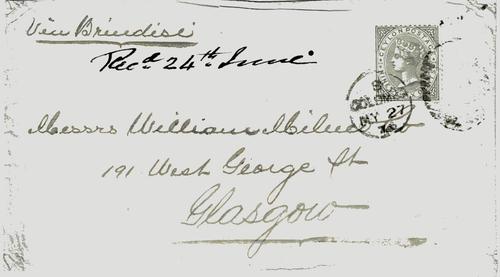 Via Brindisi
Recd. 24th June
CEYLON POSTAGE
COLOMBO
MY 27
Messrs William Milne
191 West George St
Glasgow